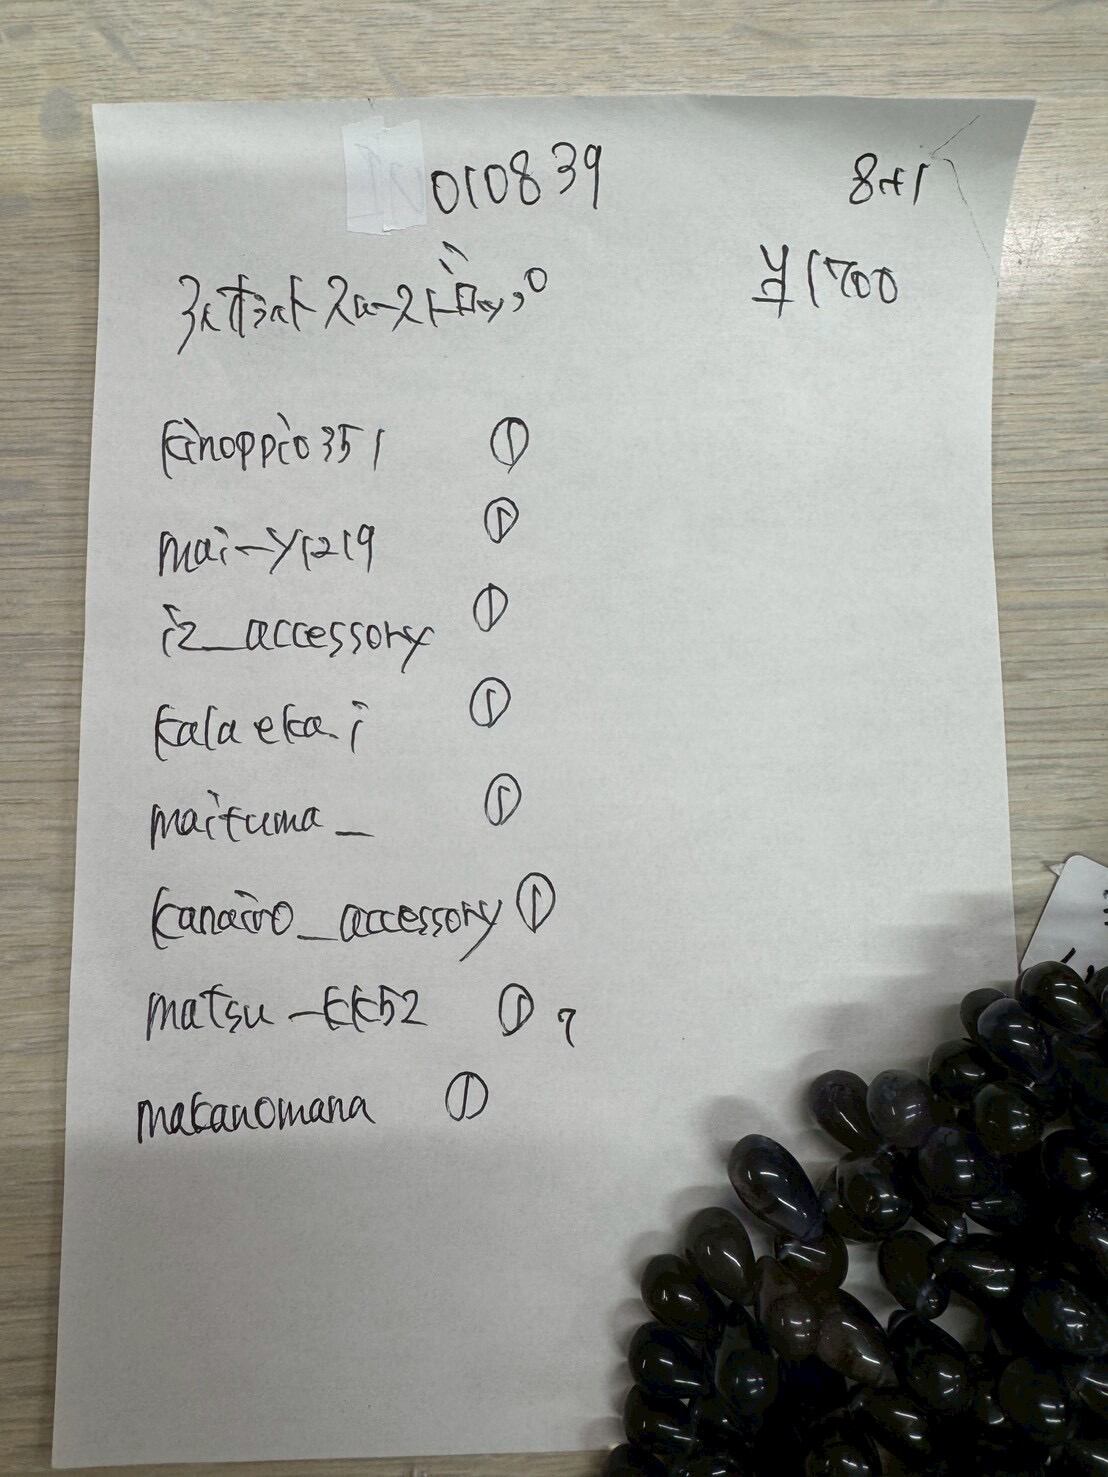 010839
8+1
¥1700
kinoppio351 ①
mai-y1219 ①
iz_accessory ①
kalaeka.i ①
maituma_ ①
kanairo_accessory ①
matsu-kk52 ① 7
makanomana ①